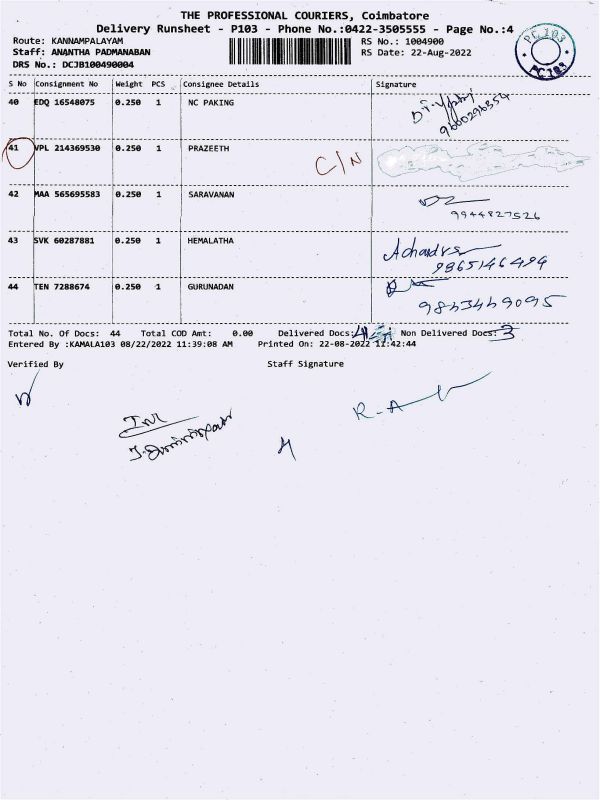 THE PROFESSIONAL COURIERS, Coimbatore
Delivery Runsheet - P103 - Phone No.:0422-3505555 - Page No.:4
Route: KANNAMPALAYAM RS No.: 1004900
Staff: ANANTHA PADMANABAN RS Date: 22-Aug-2022
DRS No.: DCJB100490004
PC 103
PC103
S No Consignment No Weight PCS Consignee Details Signature
40 EDQ 16548075 0.250 1 NC PAKING
41 VPL 214369530 0.250 1 PRAZEETH C/N
42 MAA 565695583 0.250 1 SARAVANAN
9944827526
43 SVK 60287881 0.250 1 HEMALATHA
9865146494
44 TEN 7288674 0.250 1 GURUNADAN
9843469095
Total No. Of Docs: 44 Total COD Amt: 0.00 Delivered Docs: Non Delivered Docs: 3
Entered By :KAMALA103 08/22/2022 11:39:08 AM Printed On: 22-08-2022 11:42:44
Verified By Staff Signature
R-A